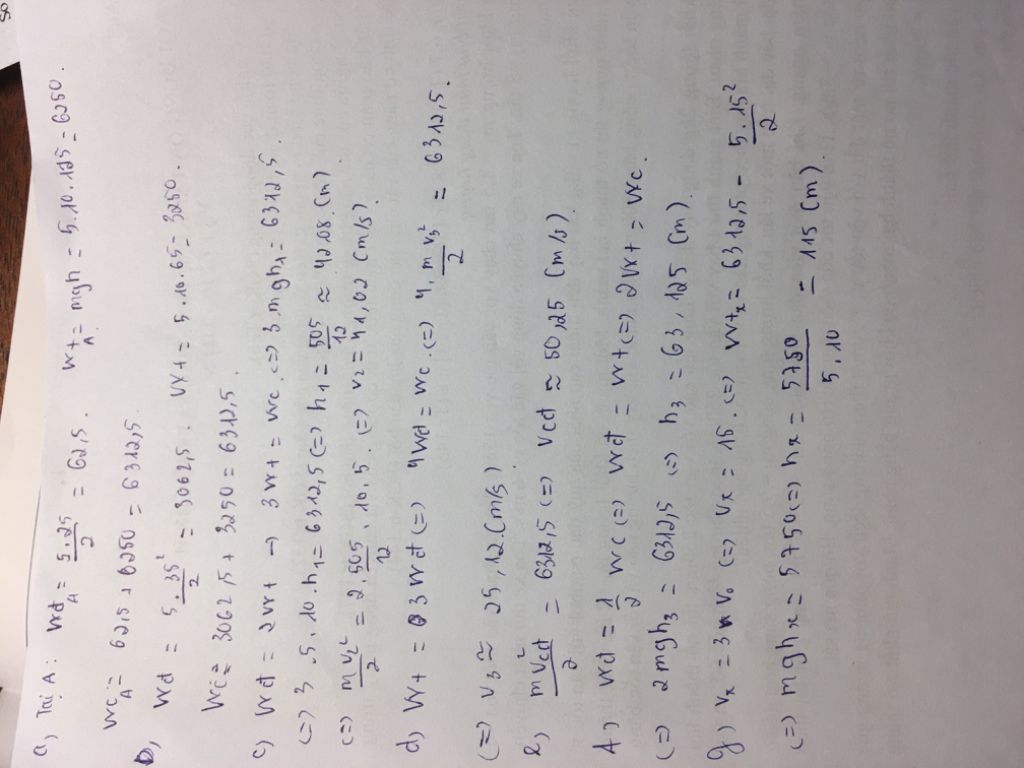 a, Tại A: Wđ_A = 5.25/2 = 62,5. Wt_A = mgh = 5.10.125 = 6250.
Wc_A = 62,5 + 6250 = 6312,5
b, Wđ = 5.35²/2 = 3062,5. Wt = 5.10.65 = 3250.
Wc = 3062,5 + 3250 = 6312,5.
c, Wđ = 2Wt → 3Wt = Wc. (=) 3.mgh₁ = 6312,5
(=) 3.5.10.h₁ = 6312,5 (=) h₁ = 505/12 ≈ 42,08.(m)
(=) mv₂²/2 = 2.505/12.10.5. (=) v₂ = 41,02 (m/s)
d, Wt = 3Wđ (=) 4Wđ = Wc. (=) 4.mv₃²/2 = 6312,5.
(=) v₃ ≈ 25,12.(m/s)
e, mv²cđ/2 = 6312,5 (=) Vcđ ≈ 50,25 (m/s).
f, Wđ = 1/2 Wc (=) Wđ = Wt (=) 2Wt = Wc.
(=) 2mgh₃ = 6312,5 (=) h₃ = 63,125 (m)
g, vₓ = 3v₀ (=) vₓ = 15. (=) Wtₓ = 6312,5 - 5.15²/2
(=) mghₓ = 5750 (=) hₓ = 5750/5.10 = 115 (m).